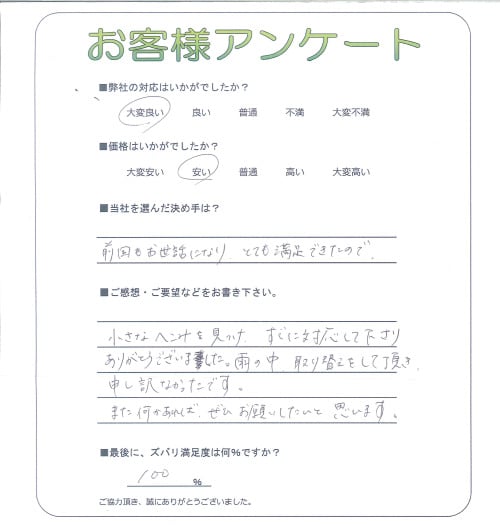 お客様アンケート
■弊社の対応はいかがでしたか？
大変良い 良い 普通 不満 大変不満
■価格はいかがでしたか？
大変安い 安い 普通 高い 大変高い
■当社を選んだ決め手は？
前回もお世話になり とても満足できたので、
■ご感想・ご要望などをお書き下さい。
小さなへこみを見つけ、すぐに対応して下さり
ありがとうございました。雨の中、取り替えをして頂き、
申し訳なかったです。
また何かあれば、ぜひお願いしたいと思います。
■最後に、ズバリ満足度は何％ですか？
100 ％
ご協力頂き、誠にありがとうございました。